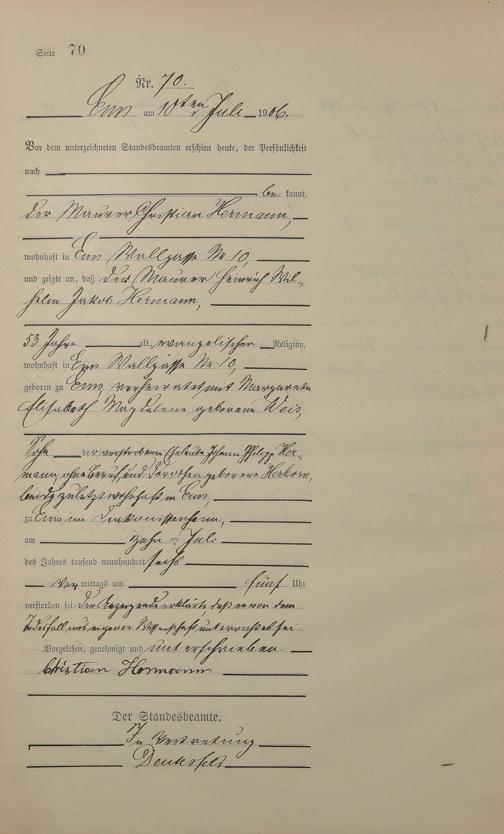 Seite 70
Nr. 70.
Ems am 10ten Juli 1906.
Vor dem unterzeichneten Standesbeamten erschien heute, der Persönlichkeit
nach
be kannt,
der Maurer Christian Hermann,
wohnhaft in Ems Wallgasse Nr 10,
und zeigte an, daß der Maurer Heinrich Wil-
helm Jakob Hermann,
53 Jahre alt, evangelischer Religion,
wohnhaft in Ems Wallgasse Nr. 10,
geboren zu Ems, verheiratet mit Margareta
Elisabeth Magdalene geborene Weis,
Sohn der verstorbenen Eheleute Johann Philipp Her-
mann, ohne Beruf, und Dorothea geborene Herborn,
beide zuletzt wohnhaft in Ems,
zu Ems im Diakonissenheim,
am zehn = Juli
des Jahres tausend neunhundert sechs
Vor mittags um fünf Uhr
verstorben sei. Der Anzeigende erklärte, daß er von dem
Todesfall aus eigener Wissenschaft unterrichtet sei
Vorgelesen, genehmigt und unterschrieben.
Christian Hermann
Der Standesbeamte.
In Vertretung